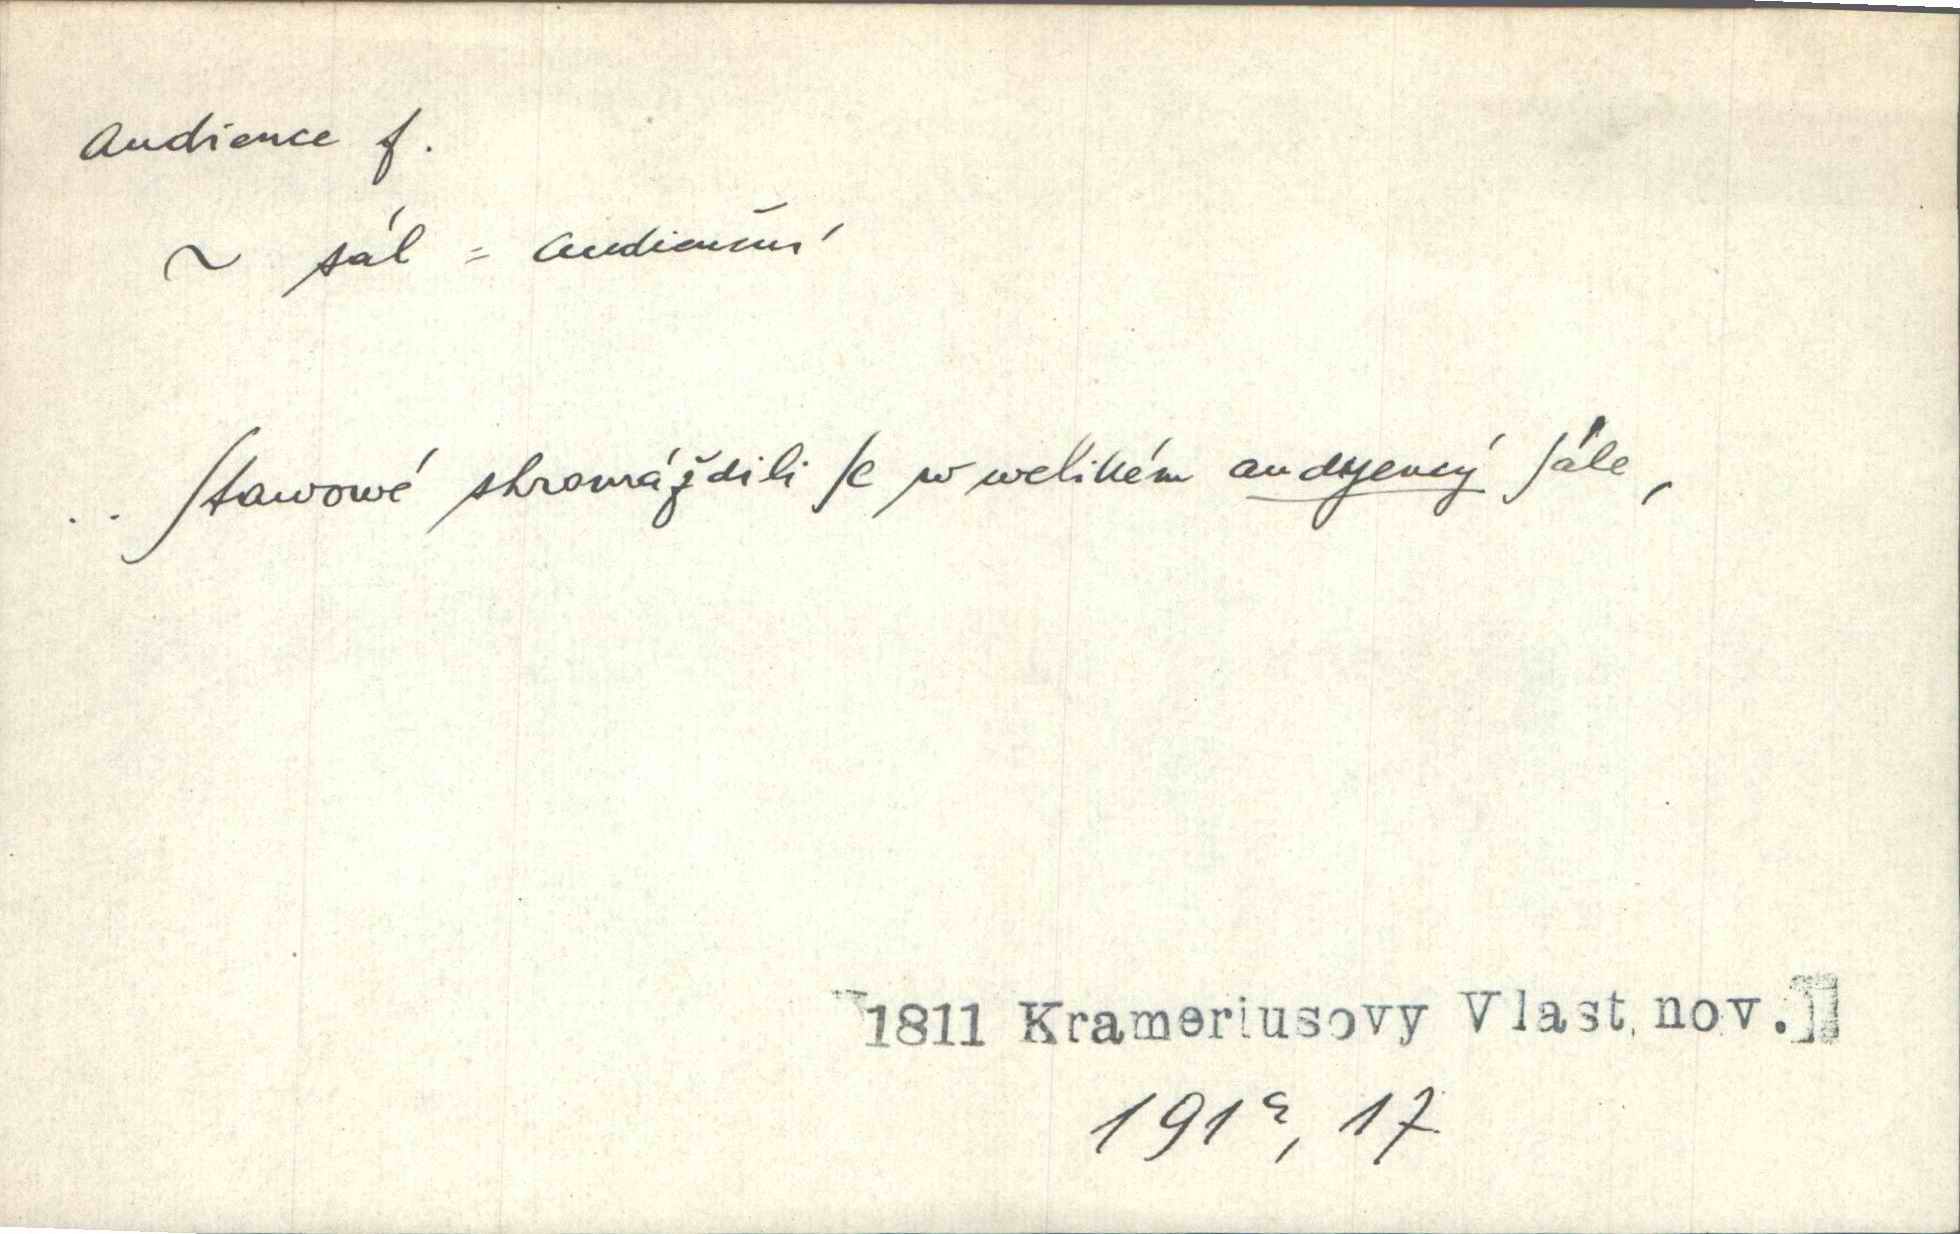 audience f.
~ sál = audienční
.. ſtawowé shromáždili ſe w welikém audyency ſále,
1811 Krameriusovy Vlast. nov.]
191a, 17